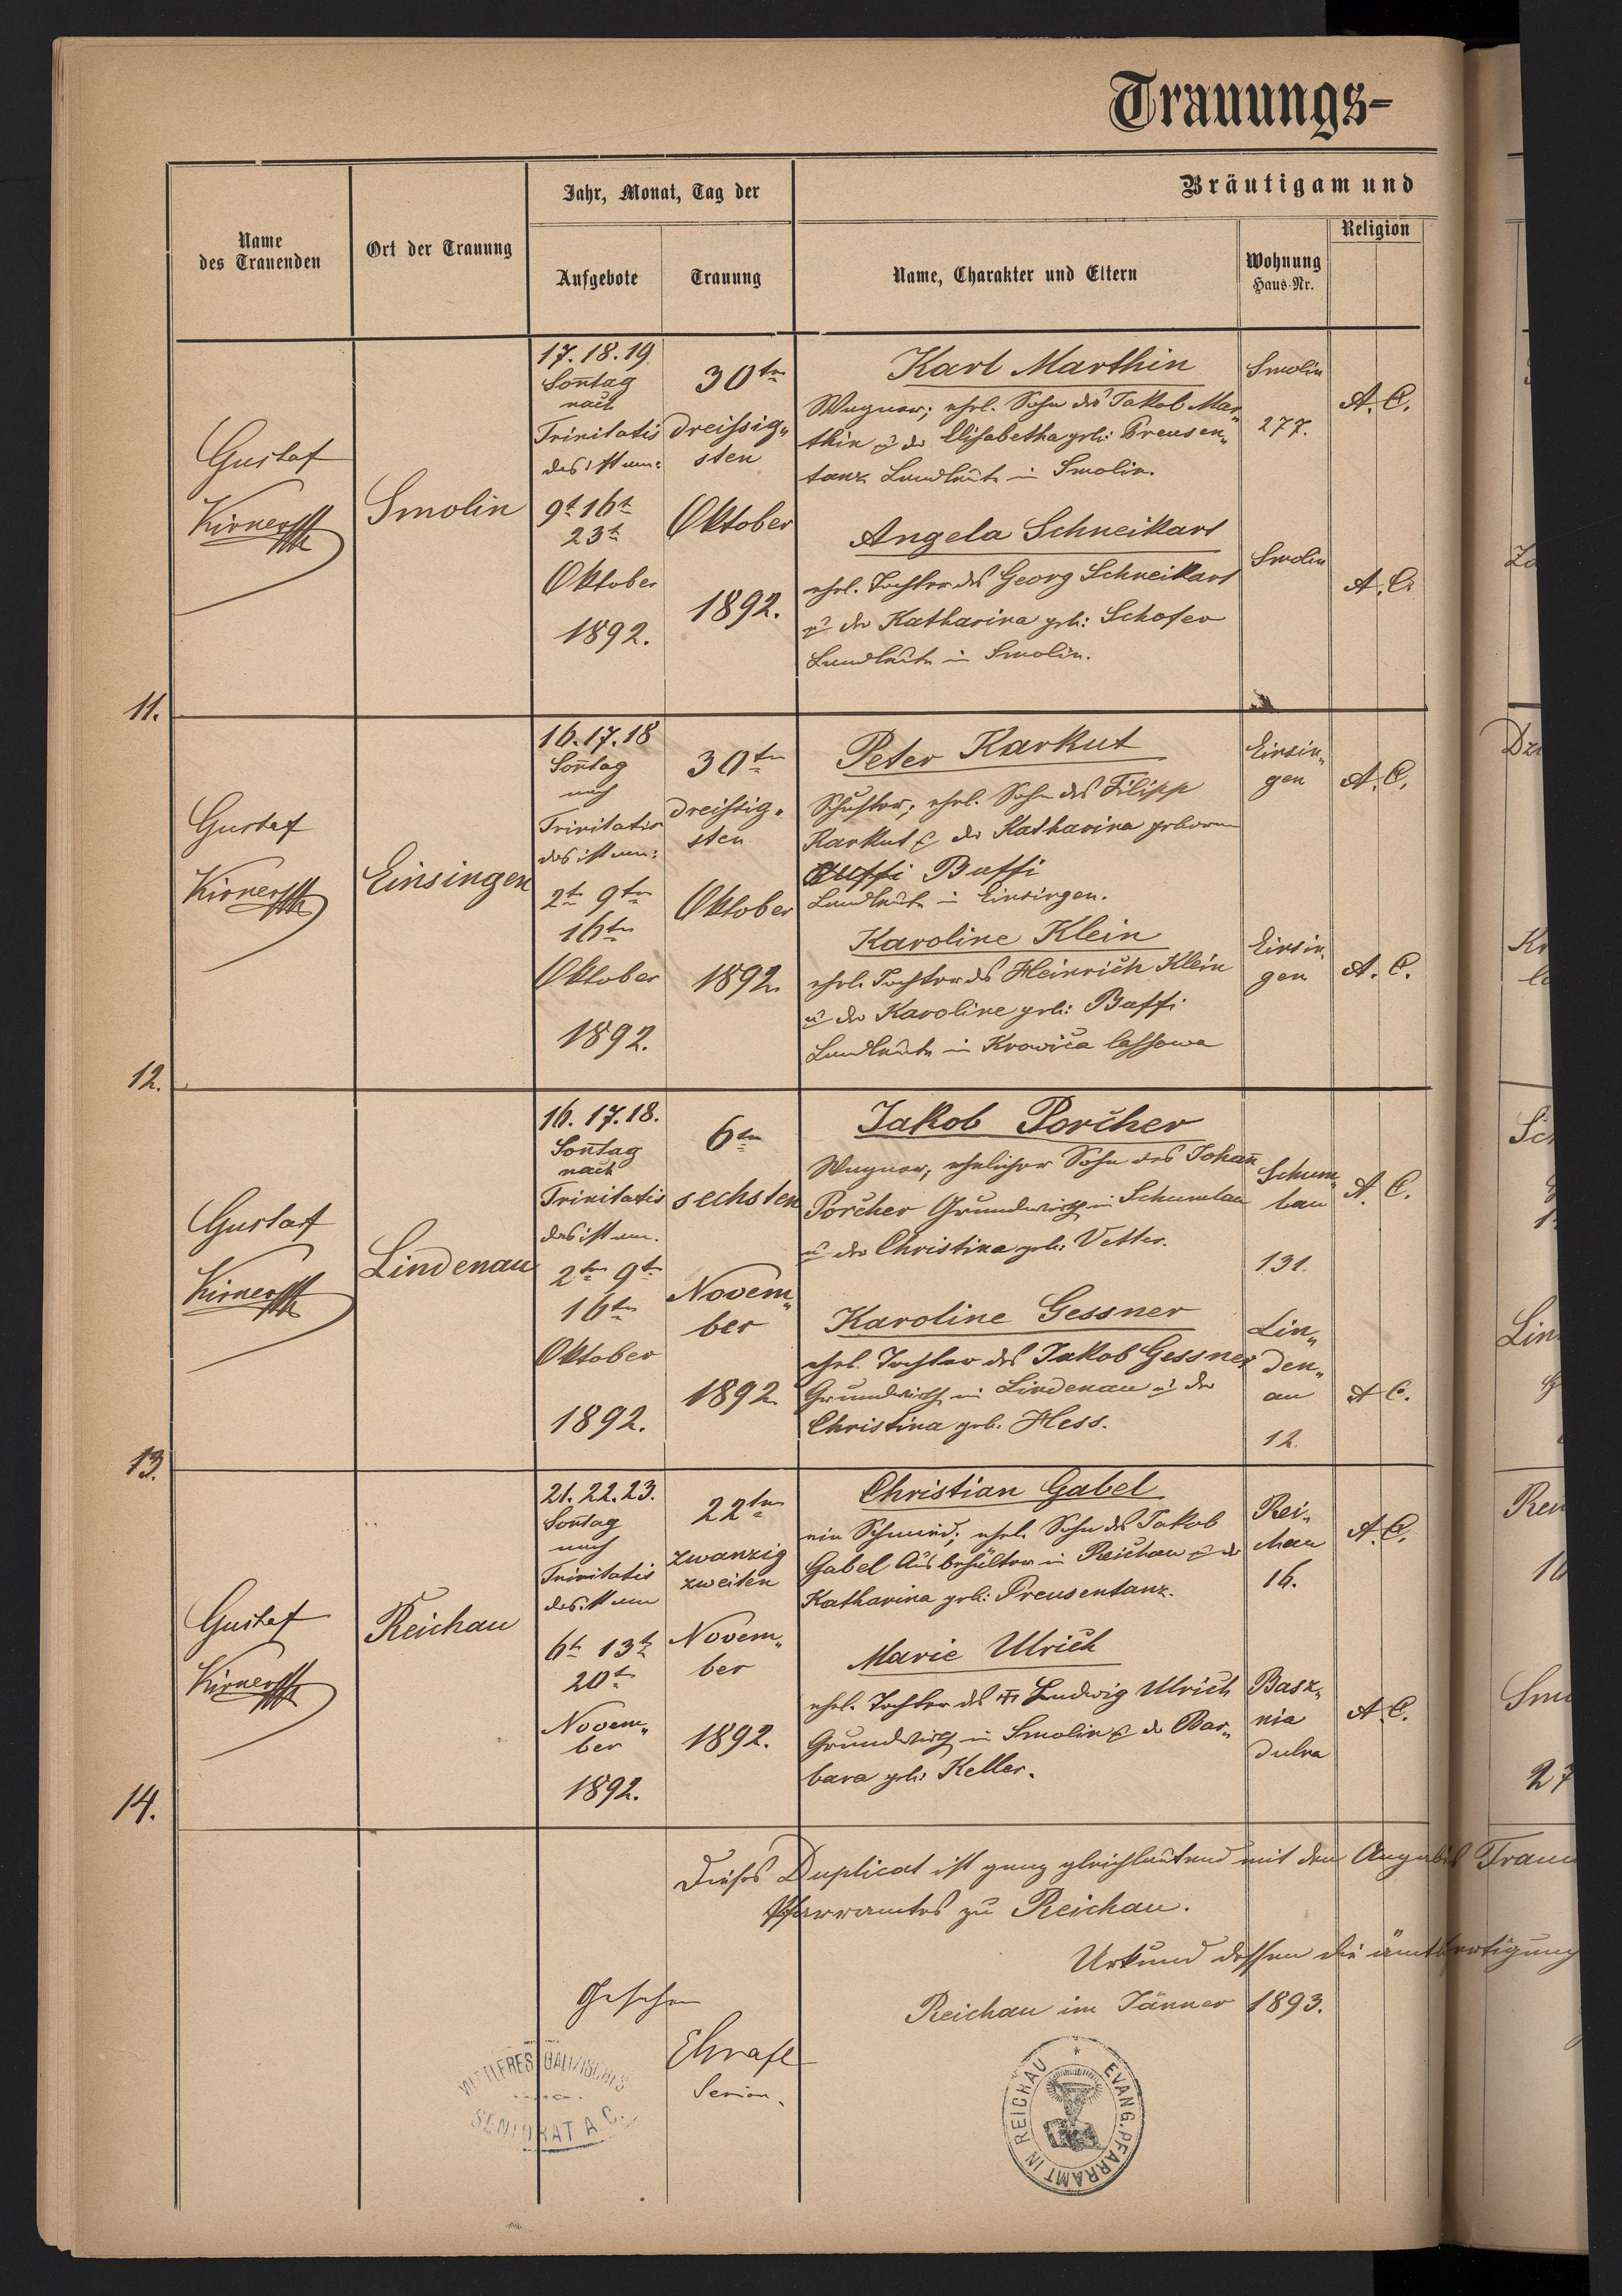 Trauungs-
Name des Trauenden
Ort der Trauung
Jahr, Monat, Tag der
Aufgebote
Trauung
Bräutigam und
Name, Charakter und Eltern
Wohnung
Haus-Nr.
Religion
11.
Gustaf
Kirner
Smolin
17. 18. 19
Son̄tag
nach
Trinitatis
das ist am:
9t 16t
23t
Oktober
1892.
30ten
dreissig„
sten
Oktober
1892.
Karl Marthin
Wagner; ehel. Sohn des Jakob Mar„
thin u der Elisabetha geb: Preusen„
tanz Landleute in Smolin.
Smolin
277.
A. C.
Angela Schneikart
ehel. Tochter des Georg Schneikart
u der Katharina geb: Schofer
Landleute in Smolin.
Smolin
A. C.
12.
Gustaf
Kirner
Einsingen
16. 17. 18
Son̄tag
nach
Trinitatis
das ist am:
2t 9ten
16ten
Oktober
1892.
30ten
dreissig„
sten
Oktober
1892.
Peter Karkut
Schuster; ehel. Sohn des Filipp
Karkut u der Katharina geboren
Buffi
Landleute in Einsingen.
Einsin„
gen
A. C.
Karoline Klein
ehel. Tochter des Heinrich Klein
u der Karoline geb: Baffi
Landleute in Krowica lassowa
Einsin„
gen
A. C.
13.
Gustaf
Kirner
Lindenau
16. 17. 18.
Son̄tag
nach
Trinitatis
das ist am.
2ten 9t
16ten
Oktober
1892.
6ten
sechsten
Novem„
ber
1892.
Jakob Porcher
Wagner; ehelicher Sohn des Johan̄
Porcher Grundwirth in Schumlau
u der Christina geb: Vetter.
Schum„
lau
131.
A. C.
Karoline Gessner
ehel. Tochter des Jakob Gessner
Grundwirth in Lindenau u der
Christina geb. Hess.
Lin„
den„
au
12.
A. C.
14.
Gustaf
Kirner
Reichau
21. 22. 23.
Son̄tag
nach
Trinitatis
das ist am
6t 13t
20t
Novem„
ber
1892.
22ten
zwanzig
zweiten
Novem„
ber
1892.
Christian Gabel
ein Schmied; ehel. Sohn des Jakob
Gabel Ausbehälter in Reichau u der
Katharina geb: Preusentanz.
Rei„
chau
16.
A. C.
Marie Ulrich
ehel. Tochter des Ludwig Ulrich
Grundwirth in Smolin u der Bar„
bara geb: Keller.
Basz„
nia
dulna
A. C.
Dieses Duplicat ist ganz gleichlautend mit den Angaben
Pfarramtes zu Reichau.
Urkund dessen die amtsfertigung
Reichau im Jänner 1893.
Gesehen
Senior.
MITTLERES GALIZISCHES
SENIORAT A. C.
EVANG. PFARRAMT IN REICHAU